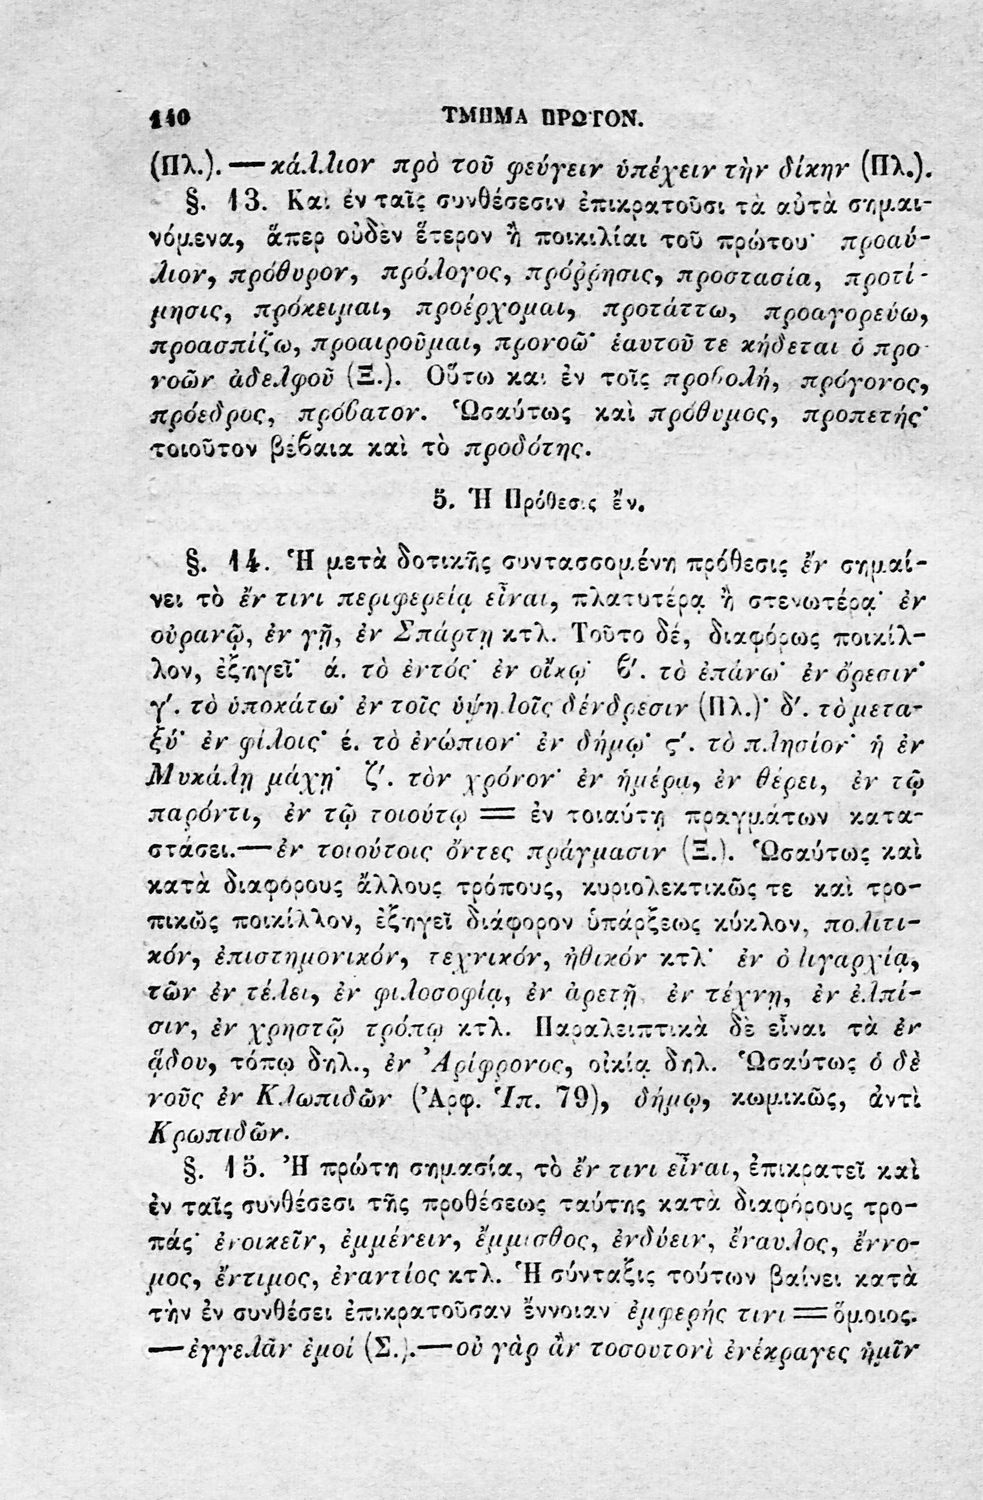 140 ΤΜΗΜΑ ΠΡΩΤΟΝ.
(Πλ.).—κάλλιον πρὸ τοῦ φεύγειν ὑπέχειν τὴν δίκην (Πλ.).
§. 13. Καὶ ἐν ταῖς συνθέσεσιν ἐπικρατοῦσι τὰ αὐτὰ σημαι-
νόμενα, ἅπερ οὐδὲν ἕτερον ἢ ποικιλίαι τοῦ πρώτου· προαύ-
λιον, πρόθυρον, πρόλογος, πρόῤῥησις, προστασία, προτί-
μησις, πρόκειμαι, προέρχομαι, προτάττω, προαγορεύω,
προασπίζω, προαιροῦμαι, προνοῶ· ἑαυτοῦ τε κήδεται ὁ προ-
νοῶν ἀδελφοῦ (Ξ.). Οὕτω καὶ ἐν τοῖς προβολή, πρόγονος,
πρόεδρος, πρόβατον. Ὡσαύτως καὶ πρόθυμος, προπετής·
τοιοῦτον βέβαια καὶ τὸ προδότης.
5. Ἡ Πρόθεσις ἔν.
§. 14. Ἡ μετὰ δοτικῆς συντασσομένη πρόθεσις ἔν σημαί-
νει τὸ ἔν τινι περιφερείᾳ εἶναι, πλατυτέρᾳ ἢ στενωτέρᾳ· ἐν
οὐρανῷ, ἐν γῇ, ἐν Σπάρτῃ κτλ. Τοῦτο δέ, διαφόρως ποικίλ-
λον, ἐξηγεῖ· ά. τὸ ἐντός· ἐν οἴκῳ· β′. τὸ ἐπάνω· ἐν ὄρεσιν·
γ′. τὸ ὑποκάτω· ἐν τοῖς ὑψηλοῖς δένδρεσιν (Πλ.)· δ′. τὸ μετα-
ξύ· ἐν φίλοις· έ. τὸ ἐνώπιον· ἐν δήμῳ· ς′. τὸ πλησίον· ἡ ἐν
Μυκάλῃ μάχη· ζ′. τὸν χρόνον· ἐν ἡμέρᾳ, ἐν θέρει, ἐν τῷ
παρόντι, ἐν τῷ τοιούτῳ = ἐν τοιαύτῃ πραγμάτων κατα-
στάσει.—ἐν τοιούτοις ὄντες πράγμασιν (Ξ.). Ὡσαύτως καὶ
κατὰ διαφόρους ἄλλους τρόπους, κυριολεκτικῶς τε καὶ τρο-
πικῶς ποικίλλον, ἐξηγεῖ διάφορον ὑπάρξεως κύκλον, πολιτι-
κόν, ἐπιστημονικόν, τεχνικόν, ἠθικόν κτλ· ἐν ὀλιγαρχίᾳ,
τῶν ἐν τέλει, ἐν φιλοσοφίᾳ, ἐν ἀρετῇ, ἐν τέχνῃ, ἐν ἐλπί-
σιν, ἐν χρηστῷ τρόπῳ κτλ. Παραλειπτικὰ δὲ εἶναι τὰ ἐν
ᾅδου, τόπῳ δηλ., ἐν Ἀρίφρονος, οἰκίᾳ δηλ. Ὡσαύτως ὁ δὲ
νοῦς ἐν Κλωπιδῶν (Ἀρφ. Ἱπ. 79), δήμῳ, κωμικῶς, ἀντὶ
Κρωπιδῶν.
§. 15. Ἡ πρώτη σημασία, τὸ ἔν τινι εἶναι, ἐπικρατεῖ καὶ
ἐν ταῖς συνθέσεσι τῆς προθέσεως ταύτης κατὰ διαφόρους τρο-
πάς· ἐνοικεῖν, ἐμμένειν, ἔμμισθος, ἐνδύειν, ἔναυλος, ἔννο-
μος, ἔντιμος, ἐναντίος κτλ. Ἡ σύνταξις τούτων βαίνει κατὰ
τὴν ἐν συνθέσει ἐπικρατοῦσαν ἔννοιαν ἐμφερής τινι = ὅμοιος.
—ἐγγελᾶν ἐμοί (Σ.).—οὐ γὰρ ἂν τοσουτονὶ ἐνέκραγες ἡμῖν